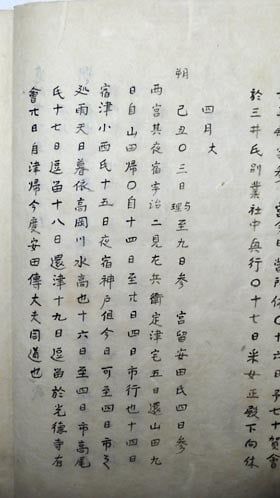 於三井氏別業社中興行〇十七日米女正殿下向休
四月大
朔 己丑〇三日理与至九日參 宮留安田氏四日參
両宮其夜宿宇治二見左兵衞定津宅五日還山田九
日自山田帰〇自十四日至廿四日市行也十四日
宿津小西氏十五日夜宿神戸但今日可至四日市之
処雨天日暮依高岡川水高也十六日至四日市高尾
氏十七日逗留十八日還津十九日逗留於光德寺有
會廿日自津帰今度安田傳大夫同道也